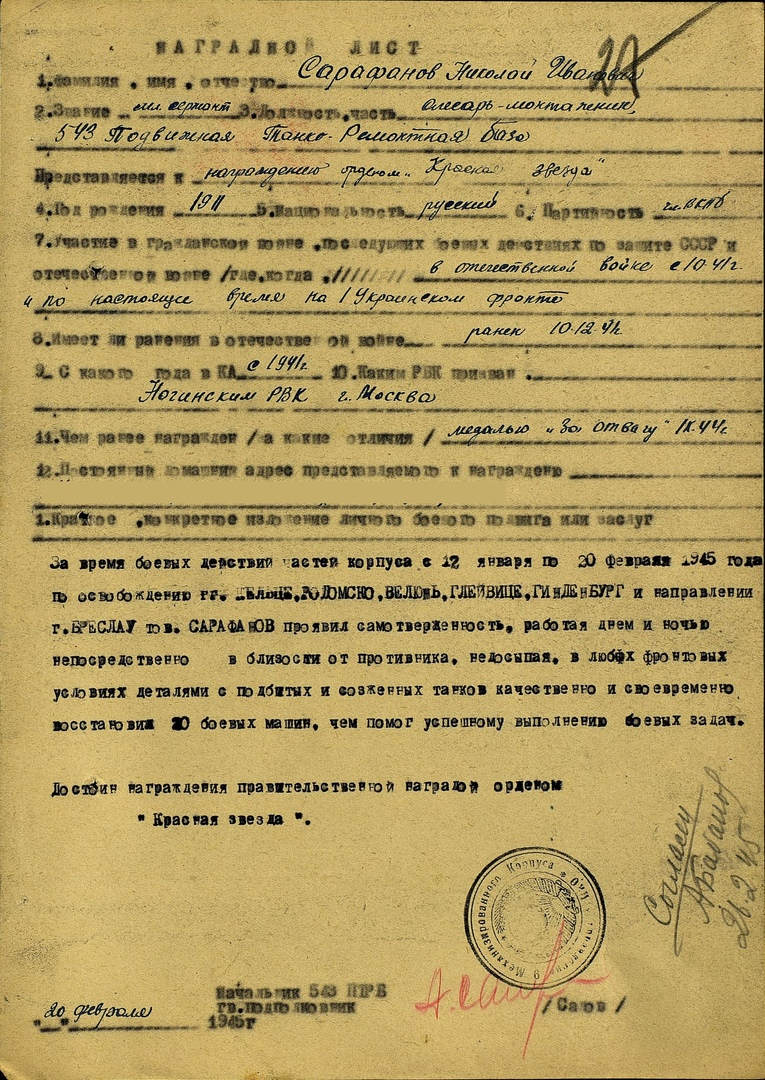 27
НАГРАДНОЙ ЛИСТ
1.Фамилия , имя , отчество Сарафанов Николай Иванович
2.Звание мл сержант 3.Должность,часть слесарь-монтажник,
543 Подвижная Танко-Ремонтная База
Представляется к награждению орденом „Красная звезда"
4.Год рождения 1911 5.Национальность русский 6. Партийность чл.ВКПб
7.Участие в гражданской войне ,последующих боевых действиях по защите СССР и
отечественной войне /где,когда ,/////// в отечественной войке с 10.41г.
по настоящее время на 1 Украинском фронте
8.Имеет ли ранения в отечественной войне ранен 10.12.41г.
9. С какого года в КА с 1941г 10.Каким РВК призван .
Ногинским РВК г.Москва
11.Чем ранее награжден /за какие отличия / медалью „За отвагу" IX.44г
12.Постоянный домашний адрес представляемого к награждению
1.Краткое ,конкретное изложение личного боевого подвига или заслуг
За время боевых действий частей корпуса с 12 января по 20 февраля 1945 года
по освобождению гг. КЕЛЬЦЕ,РОДОМСКО,ВЕЛЮНЬ,ГЛЕЙВИЦЕ,ГИНДЕНБУРГ и направлении
г.БРЕСЛАУ тов. САРАФАНОВ проявил самотверженность, работая днем и ночью
непосредственно в близости от противника, недосыпая, в любых фронтовых
условиях деталями с подбитых и созженных танков качественно и своевременно
восстановил 20 боевых машин, чем помог успешному выполнению боевых задач.
Достоин награждения правительственной наградой орденом
" Красная звезда ".
Согласен
АБаланов
26 2 45
9 Механизированного Корпуса
Начальник 543 ПТРБ
гв.подполковник /Сахов /
20 февраля 1945г